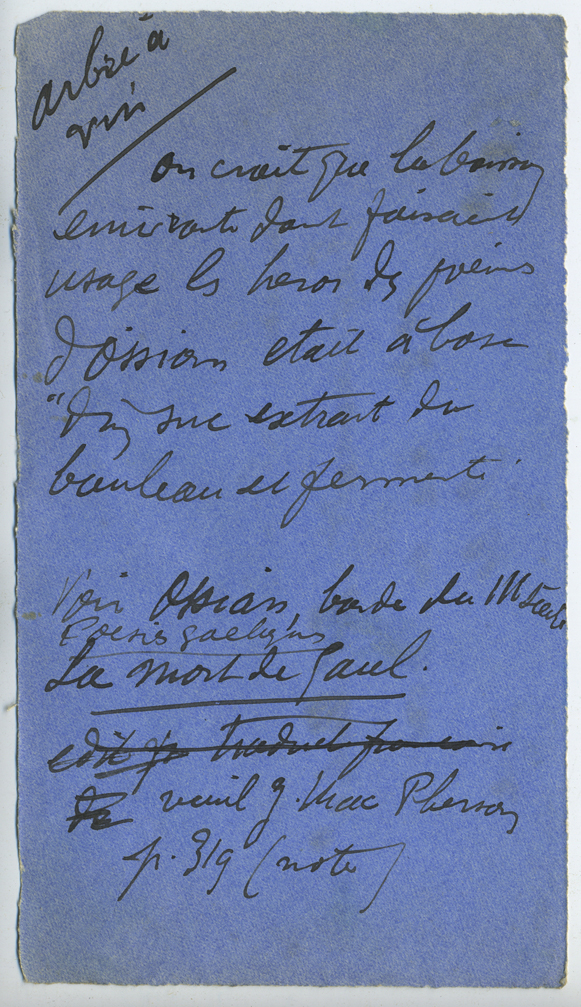 arbre à
vin
on croit que la boisson
enivrante dont faisaient
usage les heros des poèmes
d'Ossian etait à base
"d'un suc extrait du
bouleau et fermenté
Voir Ossian, barde du IIIe siècle
Poesies gaeliques
La mort de Gaul.
edit fr traduct francaise
de recueil J. Mac Pherson
p. 319 (note)